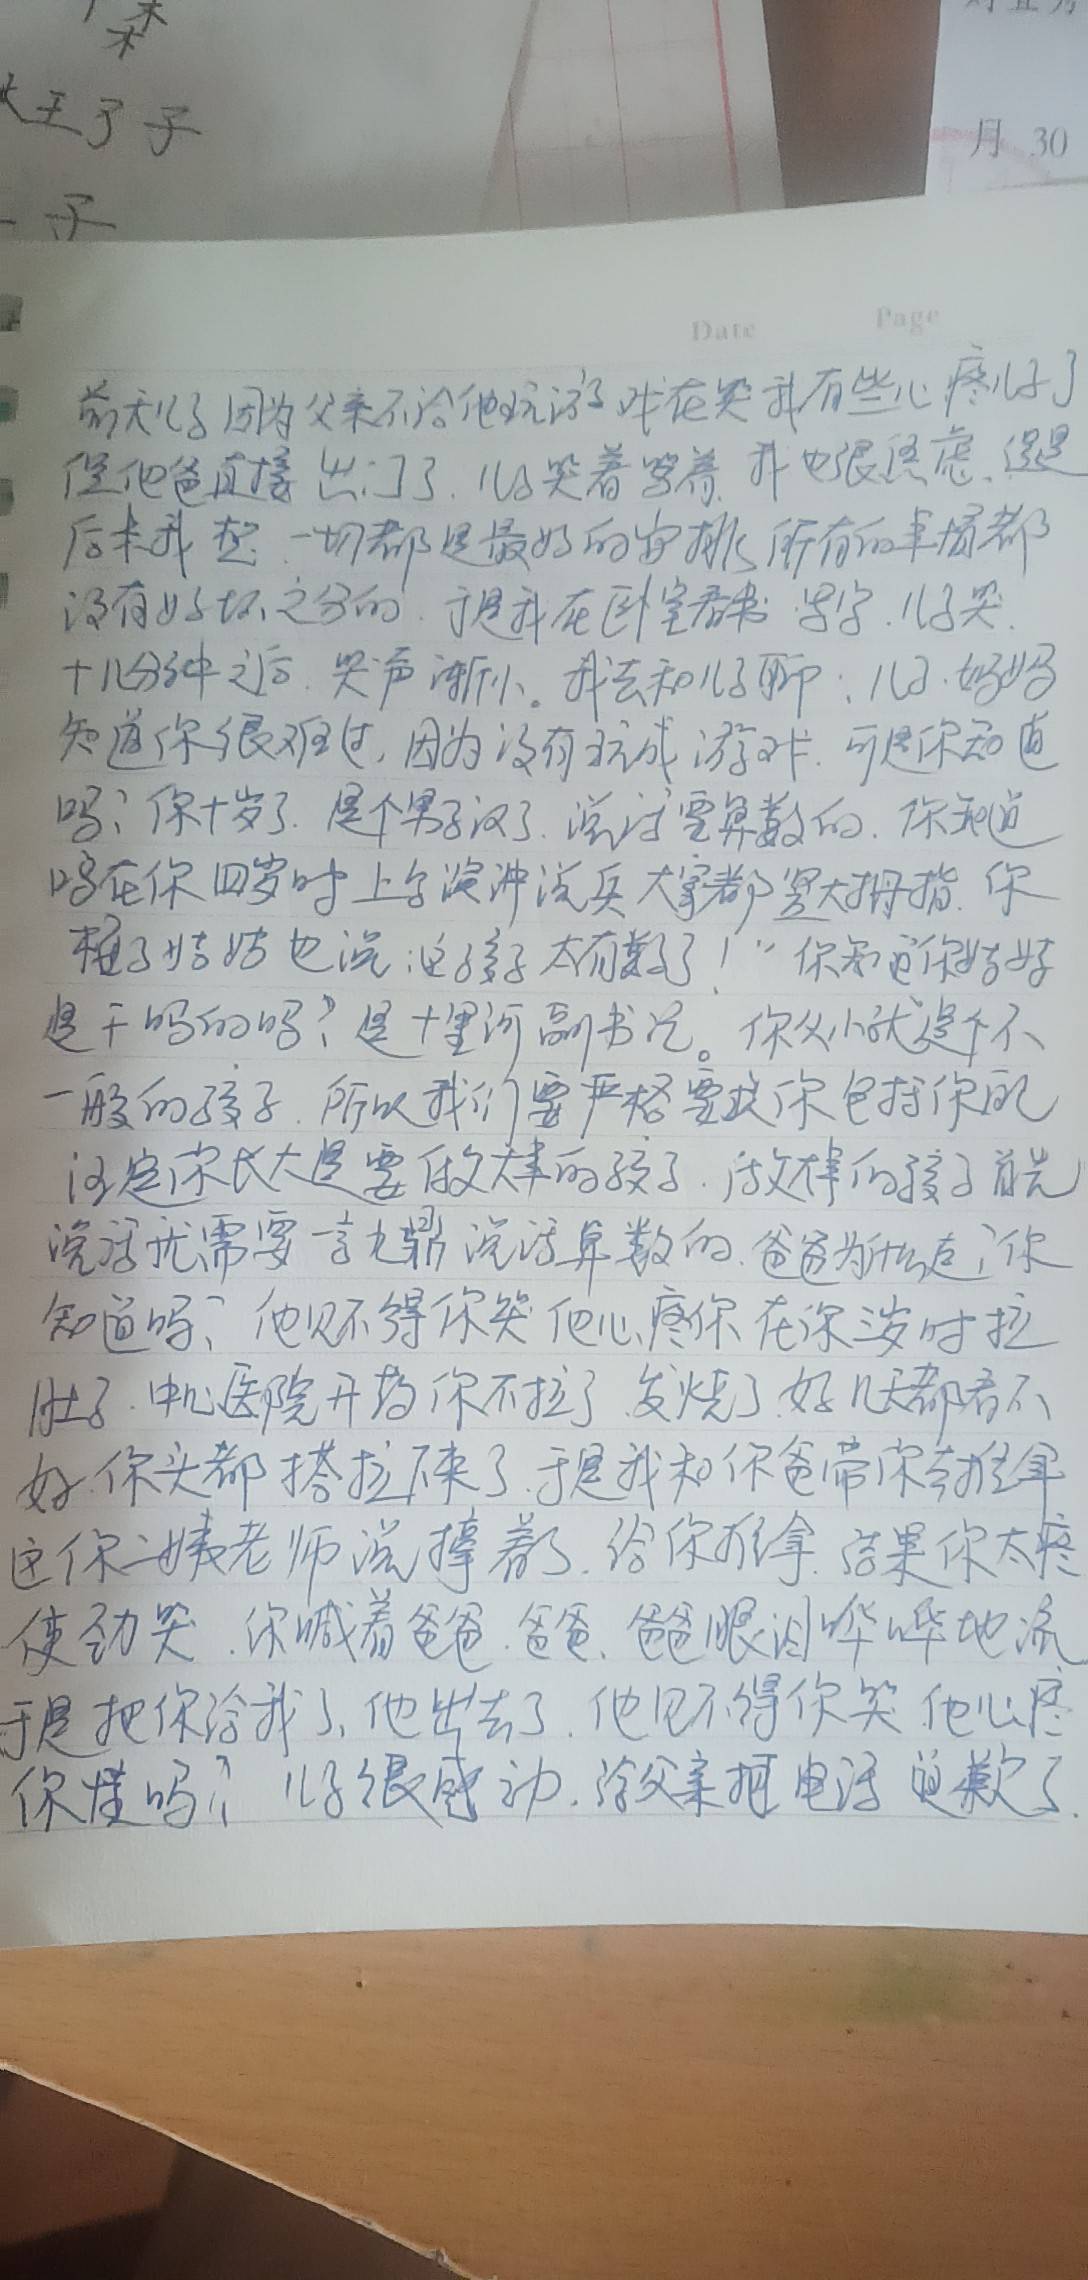 大王了子
子
月 30
Date Page
前天儿子因为父亲不给他玩游戏在哭我有些心疼儿子了
但他爸直接出门了.儿子哭着哭着.我也很焦虑.但是
后来我想.一切都是最好的安排,所有的事情都
没有好坏之分的.于是我在卧室看书 写字.儿子哭.
十几分钟之后.哭声渐小。我去和儿子聊:儿子.妈妈
知道你很难过,因为没有玩成游戏.可是你知道
吗?你十岁了.是个男子汉了.说话要算数的.你知道
吗在你四岁时上台演讲说兵大家都竖大拇指.你
桂子姑姑也说:这孩子太有数了!"你知道你姑姑
是干吗的吗?是十里河副书记。你从小就是个不
一般的孩子.所以我们要严格要求你包括你
注定你长大是要做大事的孩子.做大事的孩子首先
说话就需要一言九鼎说话算数的.爸爸为什么走?你
知道吗?他见不得你哭他心疼你在你三岁时拉
肚子.中心医院开药你不拉了.发烧了.好几天都看不
好.你头都搭拉下来了.于是我和你爸带你去推拿
这你二姨老师说撞着了.给你推拿.结果你太疼
使劲哭.你喊着爸爸.爸爸、爸爸眼泪哗哗地流
于是把你给我了、他出去了.他见不得你哭.他心疼
你懂吗?儿子很感动.给父亲打电话道歉了.